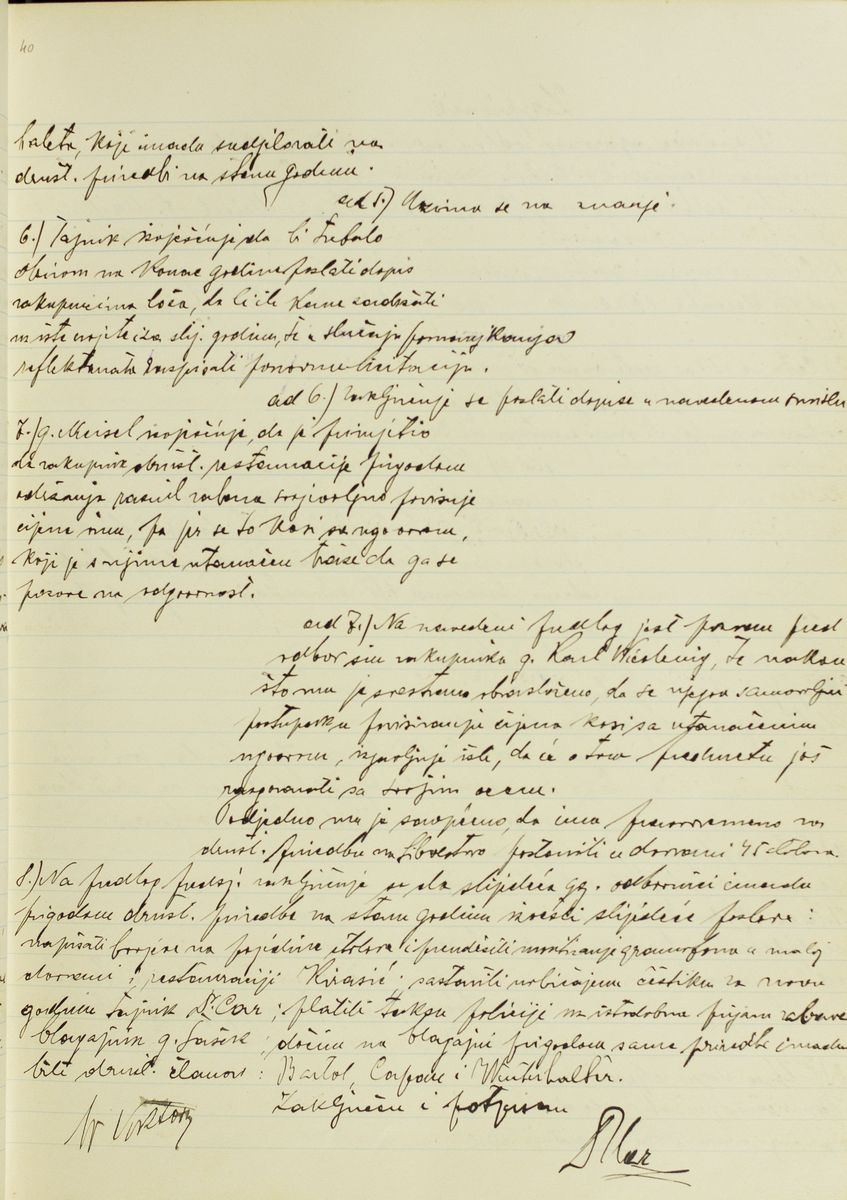 40
baleta, koji imadu sudjelovati na
društ. priredbi na staru godinu.
ad 5.) Uzima se na znanje.
6.) Tajnik izvješćuje da bi trebalo
obzirom na konac godine poslati dopis
zakupnicima loža, da li ih kane zadržati
uz iste uvjete i za slij. godinu, te u slučaju pomanjkanja
reflektanata raspisati ponovnu licitaciju.
ad 6.) Zaključuje se poslati dopise u navedenom smislu
7.) g. Meisel izvješćuje, da je primjetio
da zakupnik društ. restauracije prigodom
održavanja raznih zabava svojevoljno povisuje
cijene vinu, pa jer se to kosi sa ugovorom,
koji je s njime utanačen traži da ga se
pozove na odgovornost.
ad 7.) Na navedeni predlog jest pozvan pred
odbor sin zakupnika g. Karl, te nakon
što mu je svestrano obrazloženo, da se njegov samovoljni
postupak u povisivanju cijena kosi sa utanačenim
ugovorom, izjavljuje isti, da će o tom predmetu još
razgovarati sa svojim ocem.
Odjedno mu je saopćeno, da ima pravovremeno za
društ. priredbu na Silvestrovo postaviti u dvorani 45 stolova.
8.) Na predlog predsj. zaključuje se da slijedeća gg. odbornici imadu
prigodom društ. priredbe na staru godinu izvesti slijedeće poslove:
napisati brojeve na pojedine stolove i montiranje gramofona u maloj
dvorani i restauraciji Kirasić; sastaviti uobičajenu čestitku za novu
godinu tajnik Dr. Car; platiti taksu policiji za istodobnu prijavu zabave
blagajnik g. Šašek; na blagajni prigodom same priredbe imadu
biti društ. članovi: Bartol, i Winterhalter.
Zaključeno i potpisano